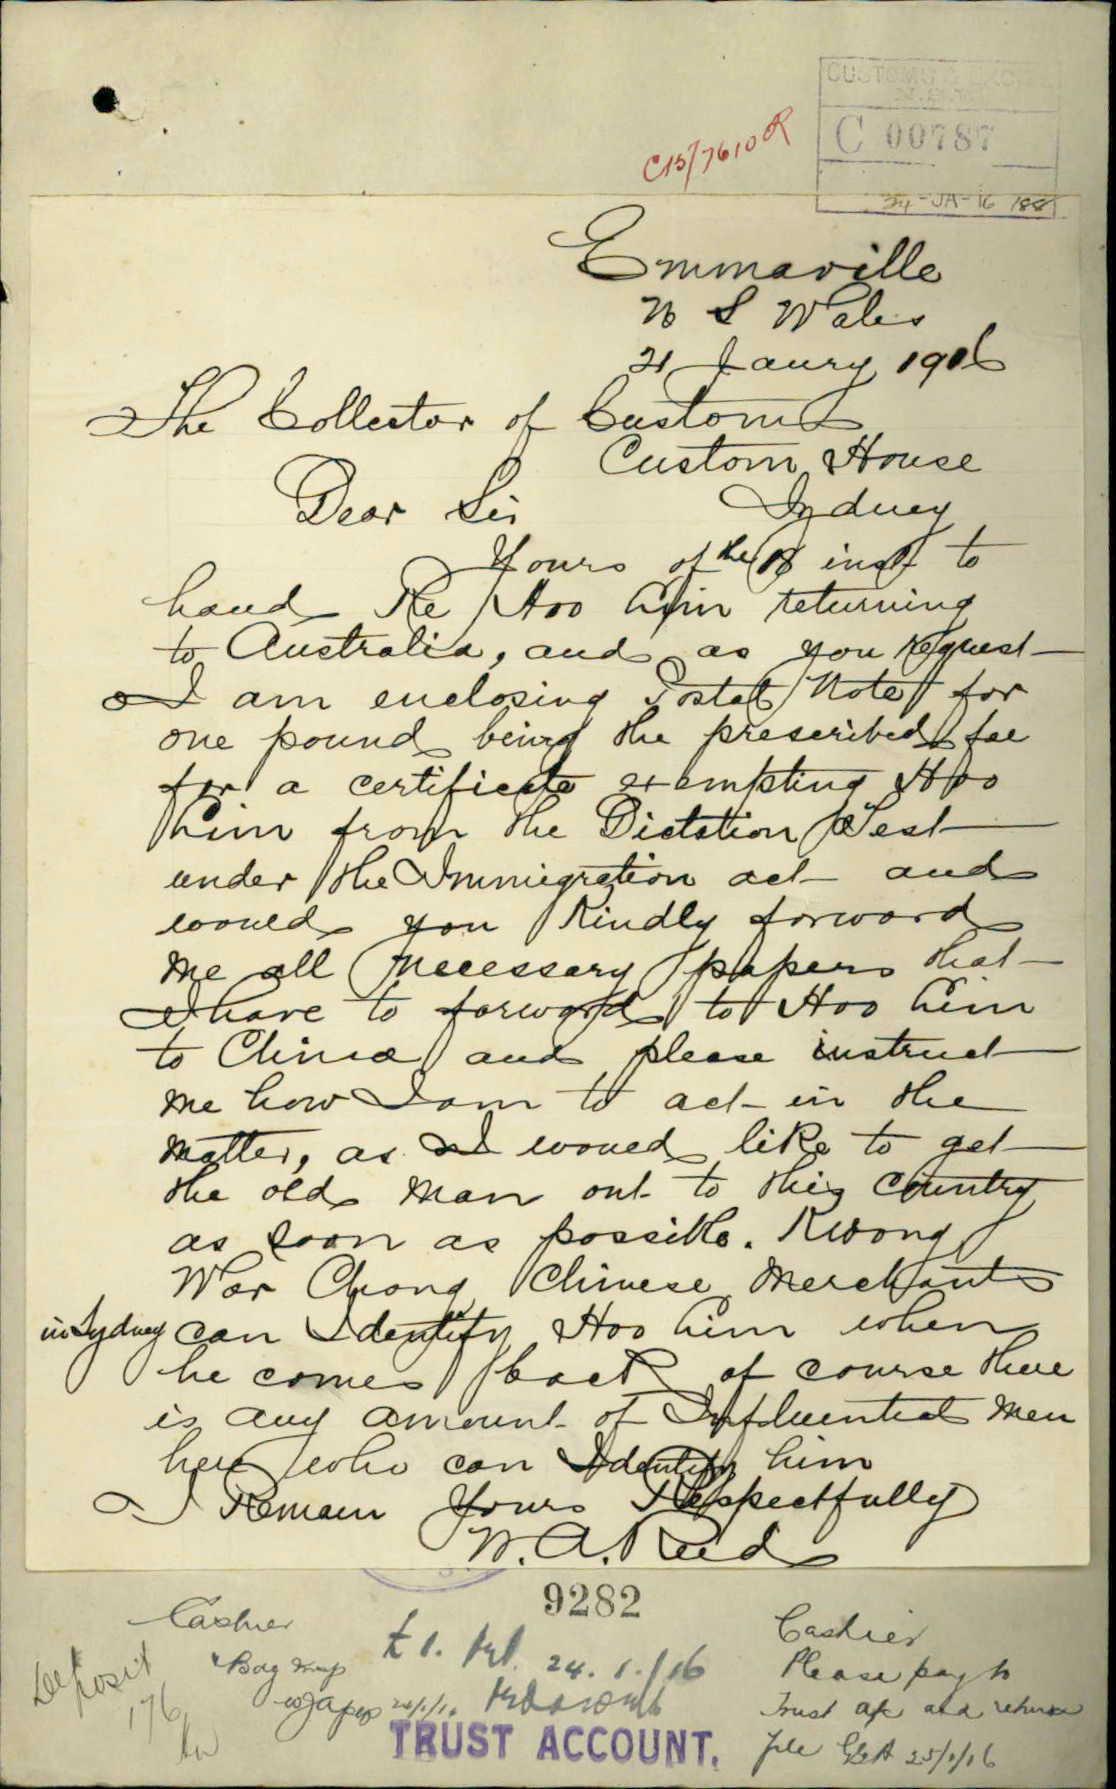 CUSTOMS & EXCISE
N.S.W.
C 00787
24-JA-16
C15/7610
Emmaville
N S Wales
21 Jaury 1916
The Collector of Customs
Custom House
Dear Sir
Sydney
Yours of the 18 inst to
hand Re Hoo Him returning
to Australia, and as you request
I am enclosing Postal Note for
one pound being the prescribed fee
for a certificate exempting Hoo
Him from the Dictation Test
under the Immigration act and
would you Kindly forward
me all necessary papers that
I have to forward to Hoo Him
to China and please instruct
me how I am to act in the
matter, as I would like to get
the old man out to this country
as soon as possible. Kwong
War Chong Chinese Merchants
in Sydney can Identify Hoo Him when
he comes back of course there
is any amount of Influential men
here who can Identify him
I Remain Yours Respectfully
W. A. Reed
9282
Cashier
£1. 24.1.16
Deposit
176
TRUST ACCOUNT.
Cashier
Please pay to
Trust a/c and return
file 25/1/16